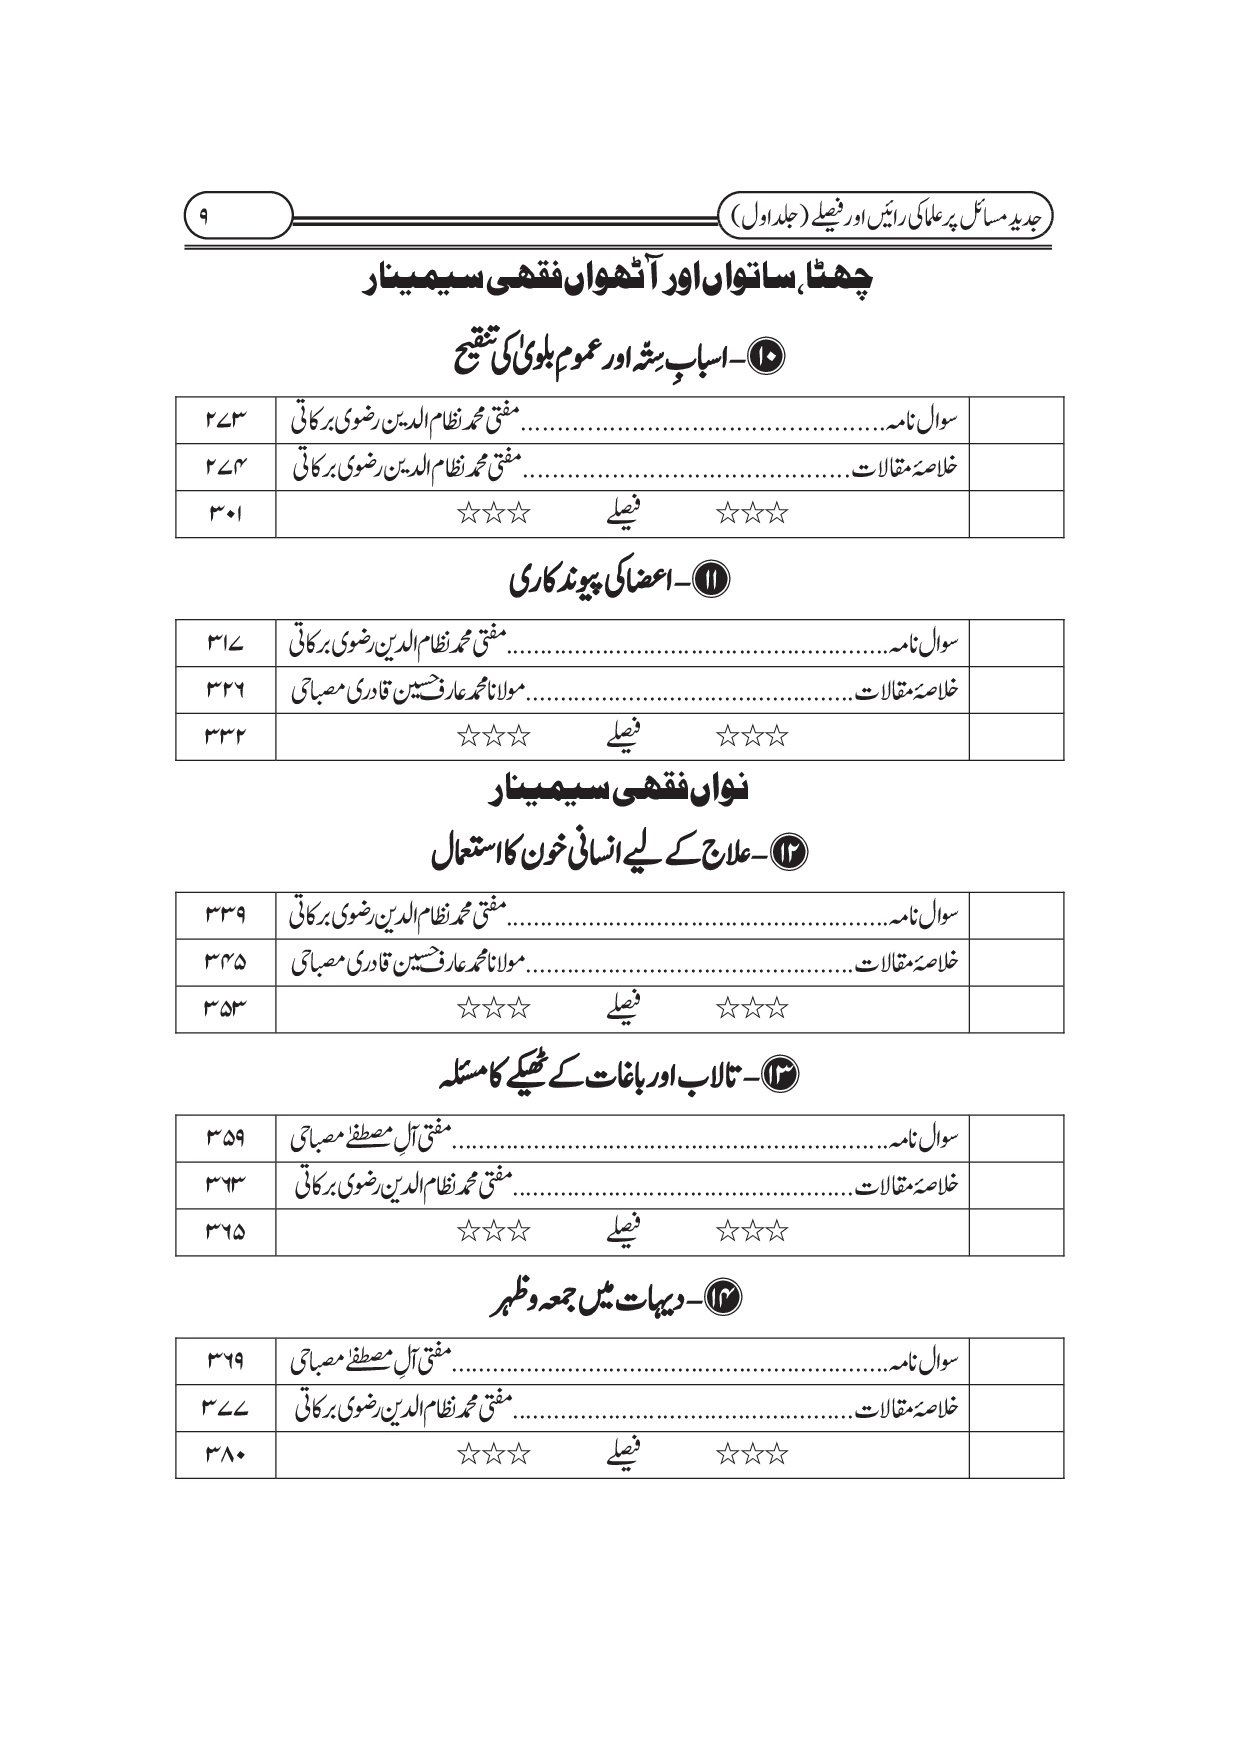 جدید مسائل پر علما کی رائیں اور فیصلے (جلد اول) ۹
چھٹا، ساتواں اور آٹھواں فقہی سیمینار
۱۰ - اسبابِ سِتّہ اور عمومِ بلویٰ کی تنقیح
سوال نامہ ................................................ مفتی محمد نظام الدین رضوی برکاتی ۲۷۳
خلاصۂ مقالات ........................................... مفتی محمد نظام الدین رضوی برکاتی ۲۷۴
☆☆☆ فیصلے ☆☆☆ ۳۰۱
۱۱ - اعضا کی پیوند کاری
سوال نامہ ......................................................... مفتی محمد نظام الدین رضوی برکاتی ۳۱۷
خلاصۂ مقالات ................................................ مولانا محمد عارف حسین قادری مصباحی ۳۲۶
☆☆☆ فیصلے ☆☆☆ ۳۳۲
نواں فقہی سیمینار
۱۲ - علاج کے لیے انسانی خون کا استعمال
سوال نامہ ......................................................... مفتی محمد نظام الدین رضوی برکاتی ۳۳۹
خلاصۂ مقالات ................................................ مولانا محمد عارف حسین قادری مصباحی ۳۴۵
☆☆☆ فیصلے ☆☆☆ ۳۵۳
۱۳ - تالاب اور باغات کے ٹھیکے کا مسئلہ
سوال نامہ ................................................................ مفتی آلِ مصطفیٰ مصباحی ۳۵۹
خلاصۂ مقالات .................................................. مفتی محمد نظام الدین رضوی برکاتی ۳۶۳
☆☆☆ فیصلے ☆☆☆ ۳۶۵
۱۴ - دیہات میں جمعہ و ظہر
سوال نامہ ................................................................ مفتی آلِ مصطفیٰ مصباحی ۳۶۹
خلاصۂ مقالات .................................................. مفتی محمد نظام الدین رضوی برکاتی ۳۷۷
☆☆☆ فیصلے ☆☆☆ ۳۸۰